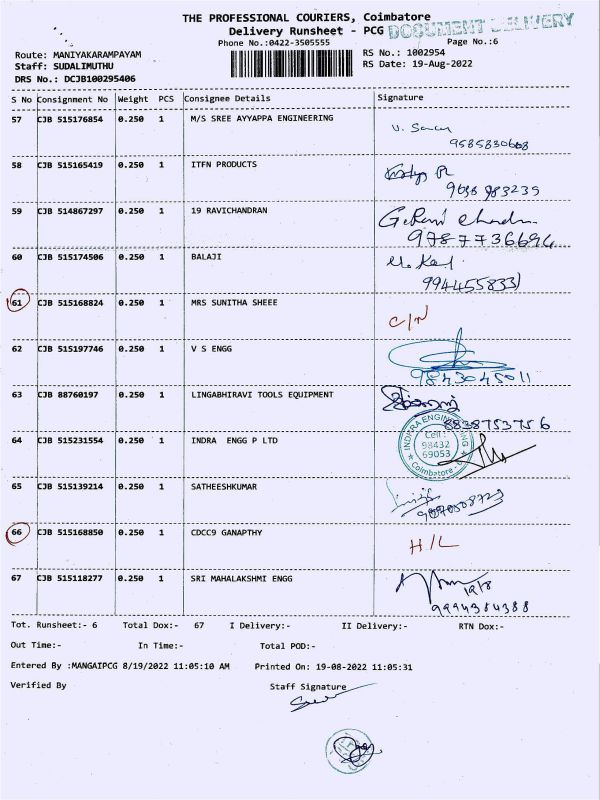 THE PROFESSIONAL COURIERS, Coimbatore
Delivery Runsheet - PCG
DOCUMENT DELIVERY
Phone No.:0422-3505555
Page No.:6
Route: MANIYAKARAMPAYAM
RS No.: 1002954
Staff: SUDALIMUTHU
RS Date: 19-Aug-2022
DRS No.: DCJB100295406
S No Consignment No Weight PCS Consignee Details Signature
57 CJB 515176854 0.250 1 M/S SREE AYYAPPA ENGINEERING
9585830668
58 CJB 515165419 0.250 1 ITFN PRODUCTS
9698983235
59 CJB 514867297 0.250 1 19 RAVICHANDRAN
G. Ravi chandran
9787736694
60 CJB 515174506 0.250 1 BALAJI
9944558331
61 CJB 515168824 0.250 1 MRS SUNITHA SHEEE C/N
62 CJB 515197746 0.250 1 V S ENGG
9843045011
63 CJB 88760197 0.250 1 LINGABHIRAVI TOOLS EQUIPMENT
8838753756
64 CJB 515231554 0.250 1 INDRA ENGG P LTD
INDFRA ENGINEERING
Cell :
98432
69053
Coimbatore - 6
65 CJB 515139214 0.250 1 SATHEESHKUMAR
66 CJB 515168850 0.250 1 CDCC9 GANAPTHY H/L
67 CJB 515118277 0.250 1 SRI MAHALAKSHMI ENGG
19/8
9994384388
Tot. Runsheet:- 6 Total Dox:- 67 I Delivery:- II Delivery:- RTN Dox:-
Out Time:- In Time:- Total POD:-
Entered By :MANGAIPCG 8/19/2022 11:05:10 AM Printed On: 19-08-2022 11:05:31
Verified By Staff Signature